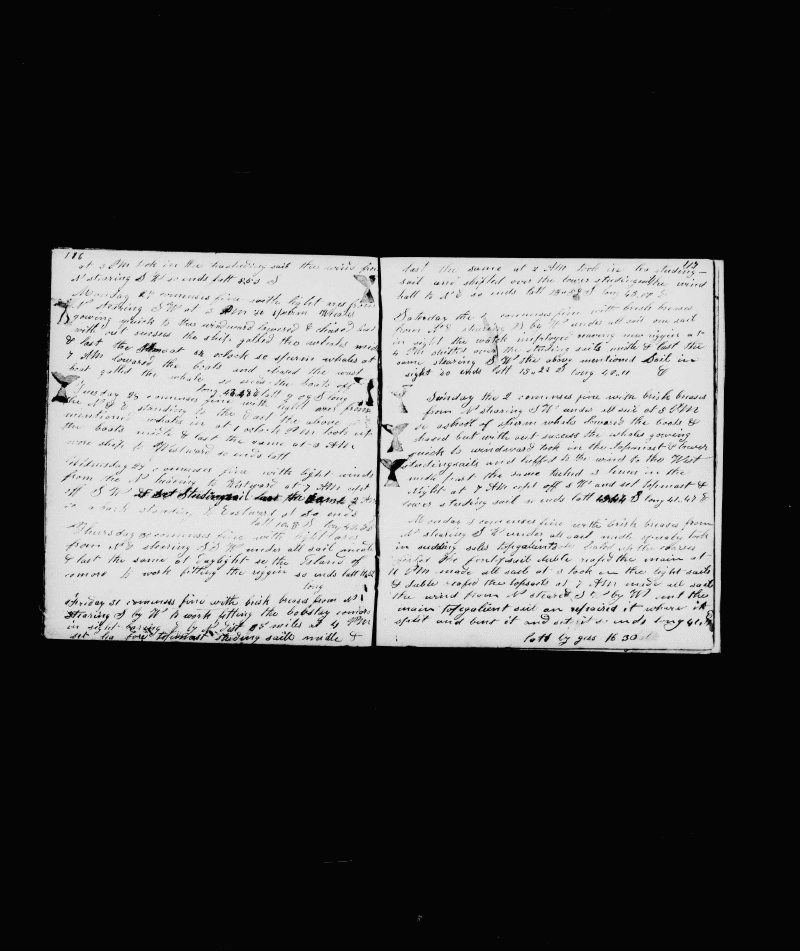 116
at 5 PM took in the studing sail the wind fine
N stearing S W so ends latt 5.52 S
Monday 27 comenses fine with light ares from
N stearing S W at 3 PM se sperm whales
gowing quick to the windward lowered & chased but
with out sucsess the ships galled the whales midle
& last the same at 12 oclock se sperm whales at
7 AM lowered the boats and chased the wast
boat galled the whale so ends the boats off
long latt 7.09 S long
Tuesday 28 comenses fine with light ares from
the N & E standing to the East the above
mentioned whales in at 1 oclock PM took in
the boats midle & last the same at 5 AM
wore ship to Westward so ends latt
Wednesday 29 comenses fine with light winds
from the N heading to Westward at 7 AM cept
off S W & set Studingsail last the same
to a bark standing to Eastward so ends
latt 10.8 S long
Thursday 30 comenses fine with light ares
from N E stearing S S W under all sail midle
& last the same at Daylight se the Island of
comoro to work fitting the riggin so ends latt
long
Friday 31 comenses fine with brisk breses from N
stearing S by W to work fitting the bobstay comoro
in sight baring E by N dist 25 miles at 4 PM
set lee fore topemast studing sails midle &
117
last the same at 2 AM took in lee studing
sail and shifted over the lower studingsail the wind
hall to N E so ends latt long 43.00 E
Saturday the 1 comenses fine with brisk breses
from N E stearing S be W under all sail one sail
in sight the watch imployed reaving new riggin at
4 PM shifted over the studing sails midle & last the
same stearing S W the above mentioned Sail in
sight so ends latt 13.22 S long 40.11 E
Sunday the 2 comenses fine with brisk breses
from N stearing S W under all sail at 5 PM
se a shoal of sperm whales lowered the boats &
chased but with out sucsess the whales gowing
quick to windward took in the topemast & lower
studingsails and luffed to the wind to the West
midle part the same tacked 2 times in the
Night at 7 AM cept off S W and set topemast &
lower studing sail so ends latt long 41.47 E
Monday 3 comenses fine with brisk breses from
N stearing S W under all sail midle squaly took
in studing sales topgalients and halled up the corses
furled the foretopsail duble reafed the main at
11 PM made all sail at 3 took in the light sails
& duble reafed the topsails at 7 AM made all sail
the wind from N steared S & by W sent the
main topgalient sail an repaired it where it
split and bent it and set it so ends long
latt by gess 16 30